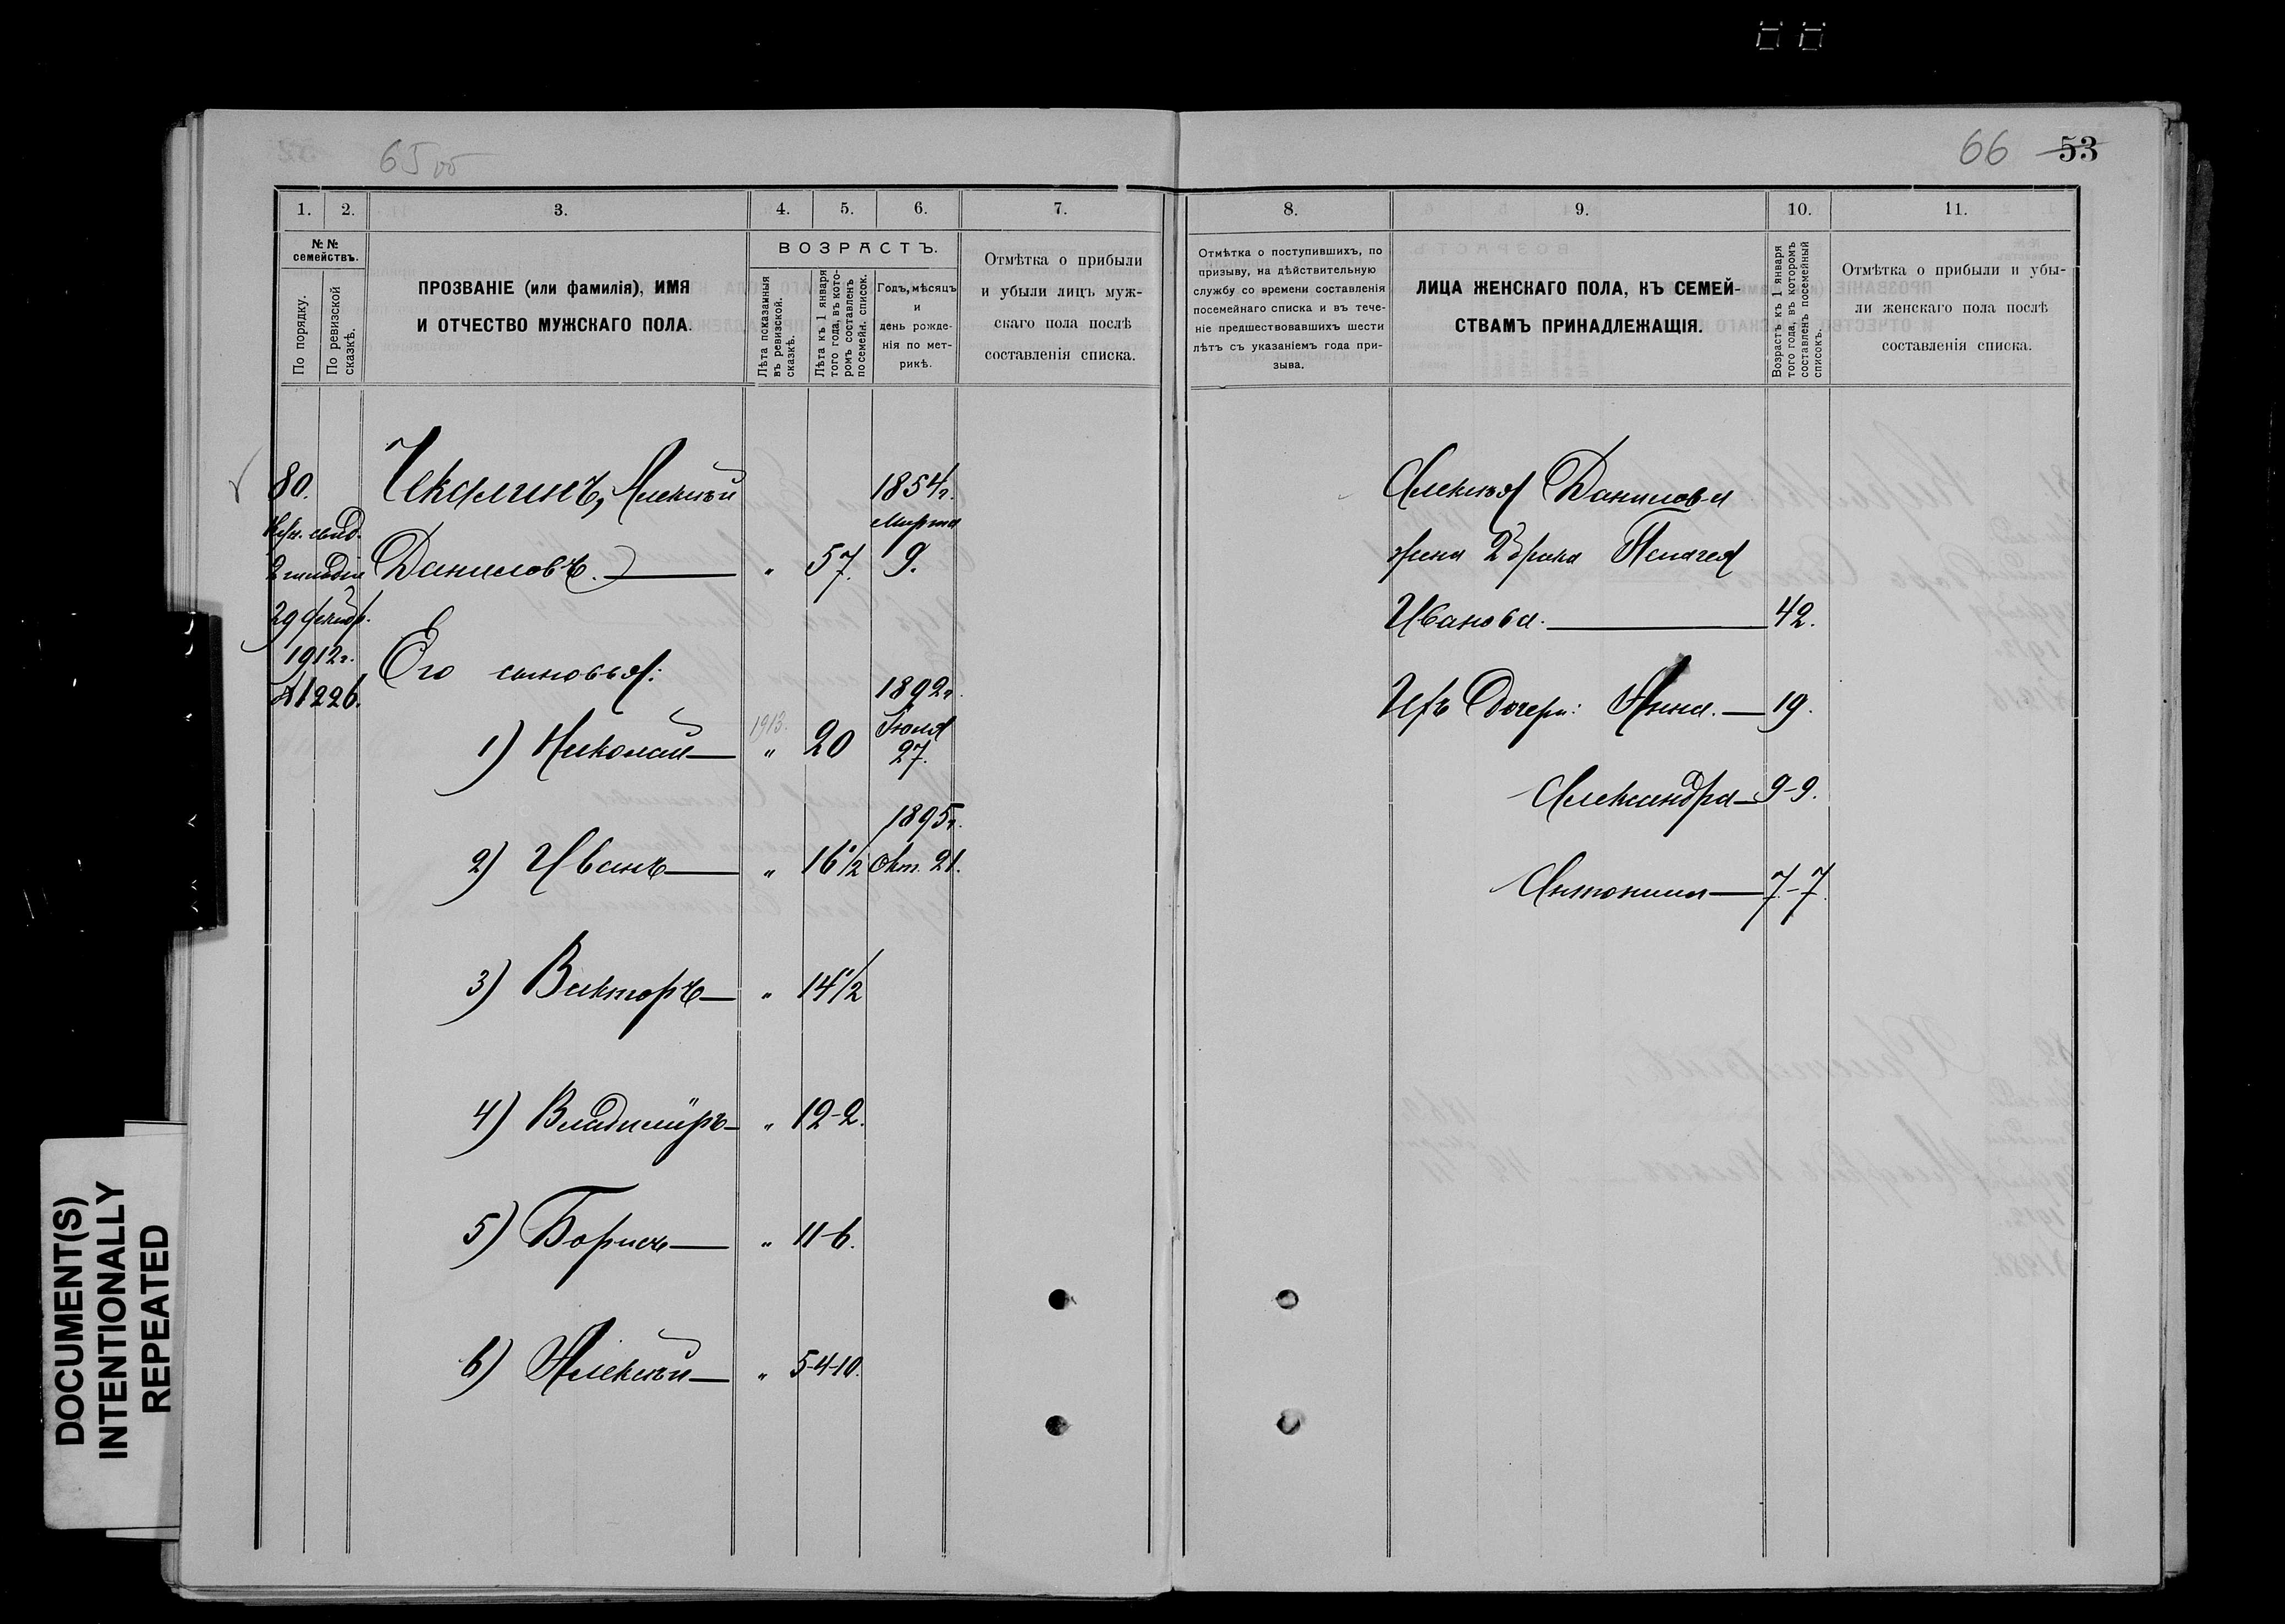 65 об
66 53
1. 2. 3. 4. 5. 6. 7.
№№ семействъ.
По порядку.
По ревизской сказкѣ.
ПРОЗВАНІЕ (или фамилія), ИМЯ
И ОТЧЕСТВО МУЖСКАГО ПОЛА.
ВОЗРАСТЪ.
Лѣта показанныя
въ ревизской.
сказкѣ.
Лѣта къ 1 января
того года, въ кото-
ромъ составленъ
посемейн. список.
Годъ, мѣсяцъ
и
день рожде-
нія по мет-
рикѣ.
Отмѣтка о прибыли
и убыли лицъ муж-
скаго пола послѣ
составленія списка.
80.
2 гильдіи
1912 г.
№ 1226.
Чекалинъ, Алексѣй 1854 г.
Марта
Даниловъ. " 57. 9.
Его сыновья:
1892 г.
1913. Іюля
1) Николай " 20 27.
1895 г.
2) Иванъ " 16 1/2 Окт. 21.
3) Викторъ " 14 1/2
4) Владиміръ " 12-2.
5) Борисъ " 11-6.
6) Алексѣй " 5-4-10.
8. 9. 10. 11.
Отмѣтка о поступившихъ, по
призыву, на дѣйствительную
службу со времени составленія
посемейнаго списка и въ тече-
ніе предшествовавшихъ шести
лѣтъ съ указаніемъ года при-
зыва.
ЛИЦА ЖЕНСКАГО ПОЛА, КЪ СЕМЕЙ-
СТВАМЪ ПРИНАДЛЕЖАЩІЯ.
Возрастъ къ 1 января
того года, въ которомъ
составленъ посемейный
списокъ.
Отмѣтка о прибыли и убы-
ли женскаго пола послѣ
составленія списка.
Алексѣя Данилова
жена 2 брака Пелагея
Иванова. 42.
Ихъ дочери: Анна. 19.
Александра 9-9.
Антонина 7-7.
DOCUMENT(S)
INTENTIONALLY
REPEATED